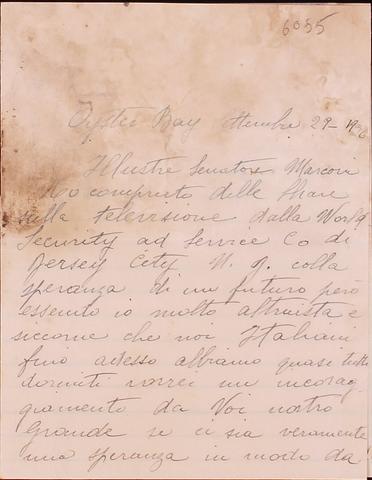 6055
Oyster Bay ttembre 29-19
Illustre Senatore Marconi
Ho comprerto delle Share
sulla televisione dalla World
Security ad Service Co di
Jersey City N. J. colla
speranza di un futuro però
essento io molto altruista e
siccome che noi Italiani
fino adesso abbiamo quasi tutti
dormiti vorrei un incorag
giamento da Voi nostro
Grande se ci sia veramente
una speranza in modo da